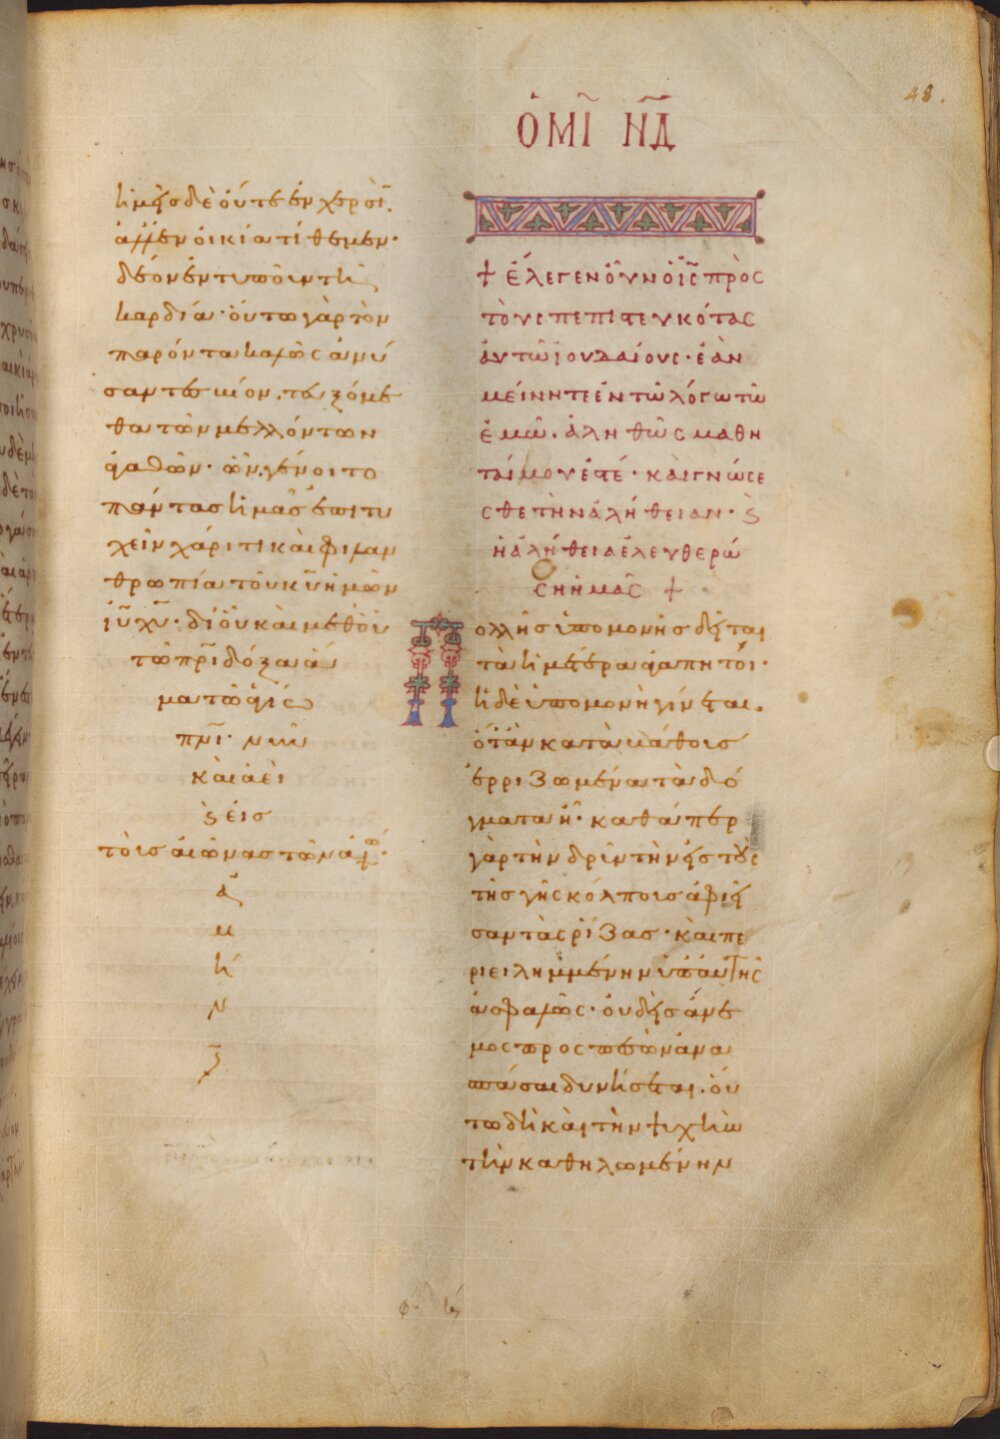 48.
ὉΜΙ̅ Ν̅Δ̅
ἡμεῖς δὲ οὔτε ἐν χερσὶ̅.
ἀλλ' ἐν οἰκία τίθεμεν·
δέον ἐντυποῦν τῆ
καρδία· οὕτω γὰρ τὸν
παρόντα καλῶς ἀνύ
σαντες βίον. τευξόμε
θα τῶν μελλόντων
ἀγαθῶν· ὧν γένοιτο
πάντας ἡμᾶς ἐπιτυ
χεῖν χάριτι καὶ φιλαν
θρωπία τοῦ κ̅υ̅ ἡμῶν
ἰ̅υ̅ χ̅υ̅· δι' οὗ καὶ μεθ' οὗ
τῶ π̅ρ̅ι δόξα ἅ
μα τῶ ἁγίω
π̅ν̅ι· νῦν
καὶ ἀεὶ
ϗ εἰς
τοὺς αἰῶνας τῶν αἰώ·
ἀ
μ
ή
ν
+ Ἔλεγεν οὖν ὁ ἰ̅ς̅ πρὸς
τοὺς πεπιστευκότας
αὐτῶ ἰουδαίους· ἐὰν
μείνητε ἐν τῶ λόγω τῶ
ἐμῶ. ἀληθῶς μαθη
ταί μου ἐστέ· καὶ γνώσε
σθε τὴν ἀλήθειαν· ϗ
ἡ ἀλήθεια ἐλευθερώ
ση ἡμᾶς +
Πολλῆς ὑπομονῆς δεῖται
τὰ ἡμέτερα ἀγαπητοί·
ἡ δὲ ὑπομονὴ γίνεται.
ὅταν κατὰ βάθους
ἐρριζωμένα τὰ δό
γματα ῇ· καθάπερ
γὰρ τὴν δρῦν τὴν εἰς τοὺς
τῆς γῆς κόλπους ἀφιεῖ
σαν τὰς ῥίζας· καὶ πε
ριειλημμένην ὑπ' αὐτῆς
ἀσφαλῶς· οὐδεὶς ἄνε
μος προσπεσὼν ἀνα
σπάσαι δυνήσεται. οὕ
τω δὴ καὶ τὴν ψυχὴν
τὴν καθηλωμένην